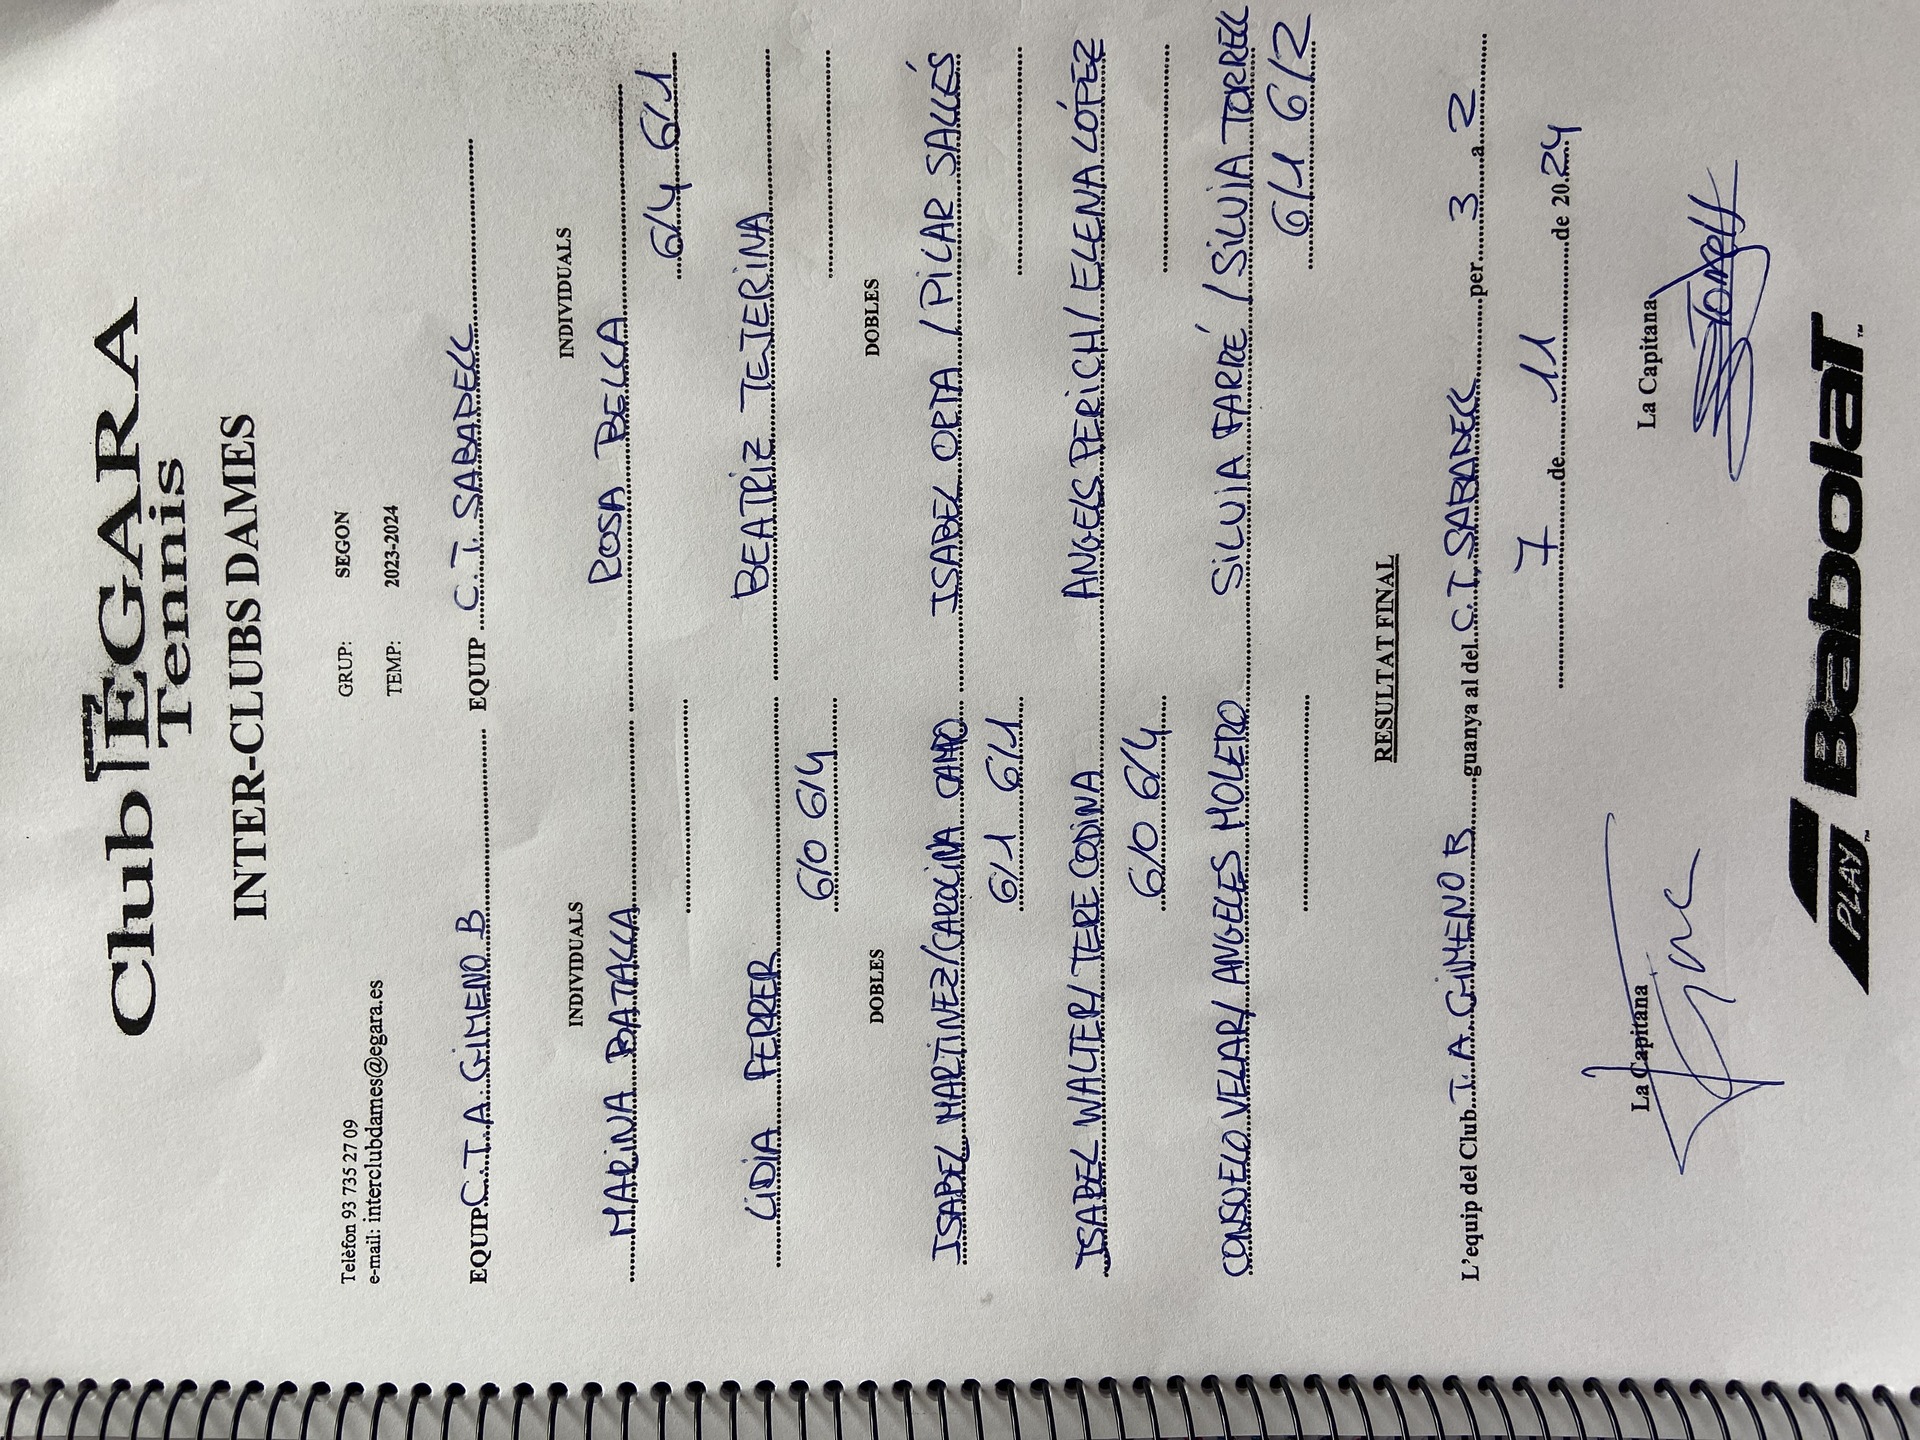 Club EGARA
Tennis
INTER-CLUBS DAMES
Telèfon 93 735 27 09
e-mail: interclubdames@egara.es
GRUP: SEGON
TEMP: 2023-2024
EQUIP C.T.A. GIMENO B EQUIP C.T. SABADELL
INDIVIDUALS INDIVIDUALS
MARINA BATALLA ROSA BELLA
6/4 6/1
LIDIA FERRER BEATRIZ TEJERINA
6/0 6/4
DOBLES DOBLES
ISABEL MARTINEZ/CAROLINA CAMPO ISABEL ORTA / PILAR SALLÉS
6/1 6/1
ISABEL WALTER/ TERE CODINA ANGELS PERICH/ ELENA LÓPEZ
6/0 6/4
CONSUELO VELAR/ ANGELES MOLERO SILVIA FARRÉ / SILVIA TORRELL
6/1 6/2
RESULTAT FINAL
L'equip del Club T. A. GIMENO B guanya al del C. T. SABADELL per 3 a 2
7 de 11 de 2024
La Capitana La Capitana
PLAY™ Babolat™